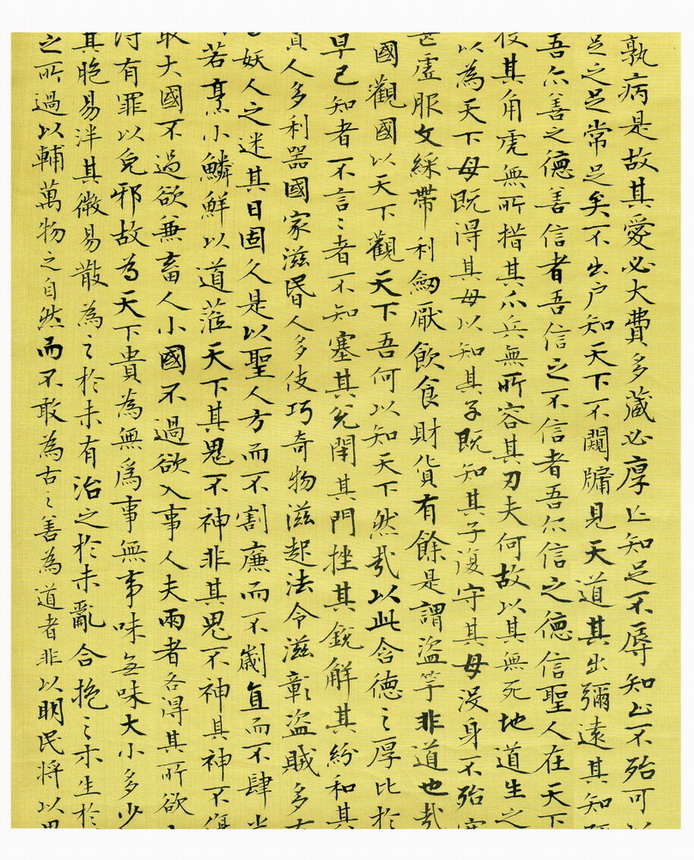 孰病是故其愛必大費多蔵必厚亡知足不辱知止不殆可
足之足常足矣不出户知天下不闚牖見天道其出彌遠其知
吾尒善之德善信者吾信之不信者吾尒信之德信聖人在天下
投其角虎無所措其爪兵無所容其刃夫何故以其無死地道生之
以為天下母既得其母以知其子既知其子復守其母没身不殆
甚虚服文綵帶利劔厭飲食財貨有餘是謂盜竽非道也哉
國觀國以天下觀天下吾何以知天下然哉以此含德之厚比於
早已知者不言〻者不知塞其兊閇其門挫其銳解其紛和其
人多利器國家滋昬人多伎巧奇物滋起法令滋彰盜賊多有
妖人之迷其日固久是以聖人方而不割廉而不劌直而不肆光
若烹小鱗鮮以道莅天下其鬼不神非其鬼不神其神不傷
取大國不過欲兼畜人小國不過欲入事人夫兩者各得其所欲
得有罪以免邪故為天下貴為無為事無事味無味大小多少
其脆易泮其微易散為之於未有治之於未亂合抱之木生於
之所過以輔萬物之自然而不敢為古之善為道者非以明民将以